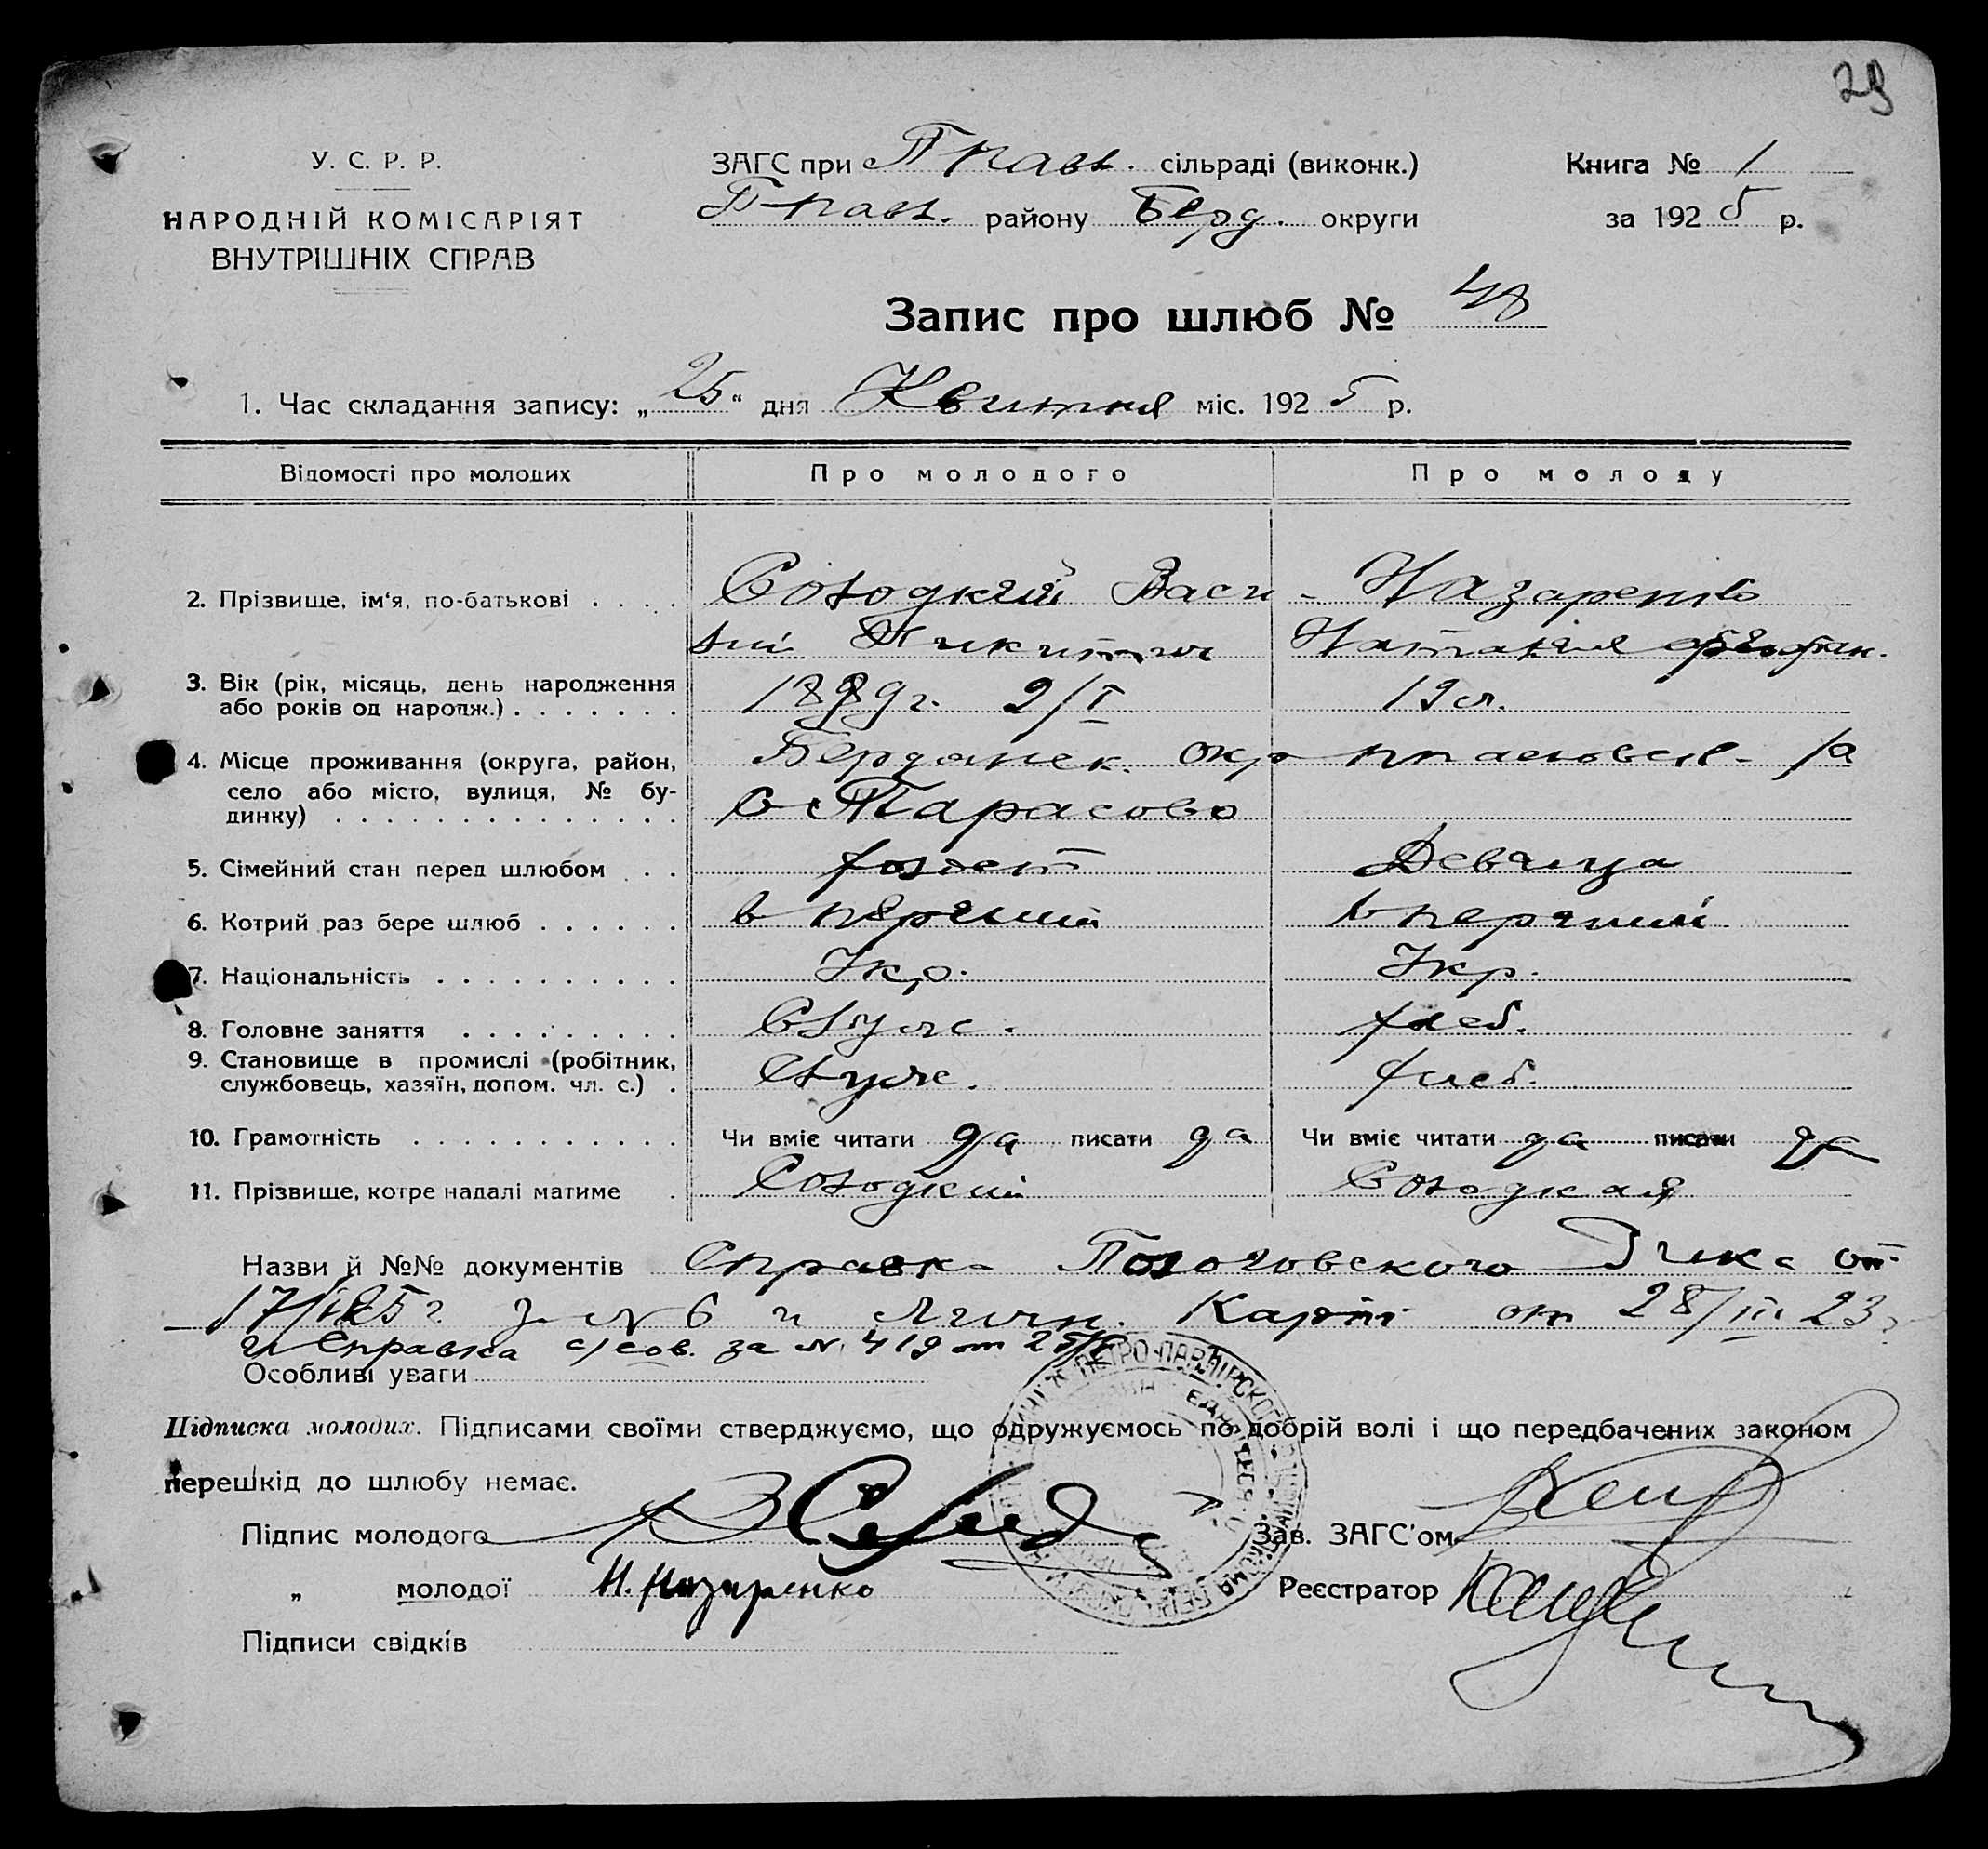 29
У. С. Р. Р.
НАРОДНІЙ КОМІСАРІЯТ
ВНУТРІШНІХ СПРАВ
ЗАГС при П-павл. сільраді (виконк.)
П-павл. району Берд. округи
Книга № 1
за 1925 р.
Запис про шлюб № 48
1. Час складання запису: „25“ дня Квитня міс. 1925 р.
Відомості про молодих Про молодого Про молоду
2. Прізвище, ім‘я, по-батькові . . . . Солодкий Васи- Назаренко
лий Никитич Наталия
3. Вік (рік, місяць, день народження
або років од народж.) . . . . . . . 1899 г. 2/I 19 л.
4. Місце проживання (округа, район, Бердянск. окр
село або місто, вулиця, № бу-
динку) . . . . . . . . . . . . . . . с Тарасово
5. Сімейний стан перед шлюбом . . . холост Девица
6. Котрий раз бере шлюб . . . . . . в перший в перший
7. Національність . . . . . . . . . . Укр. Укр.
8. Головне заняття . . . . . . . . . Служ. хлеб.
9. Становище в промислі (робітник,
службовець, хазяїн, допом. чл. с.) . Служ. хлеб.
10. Грамотність . . . . . . . . . . . Чи вміє читати да писати да Чи вміє читати да писати да
11. Прізвище, котре надалі матиме . Солодкий Солодкая
Назви й №№ документів Справка Пологовского Рика от
25 г. № 6 и Личн. Карт от 28/III 23
и Справка с/сов. за № 419 от
Особливі уваги
Підписка молодих. Підписами своїми стверджуємо, що одружуємось по добрій волі і що передбачених законом
перешкід до шлюбу немає.
Підпис молодого Зав. ЗАГС’ом
„ молодої Н. Назаренко Реєстратор
Підписи свідків